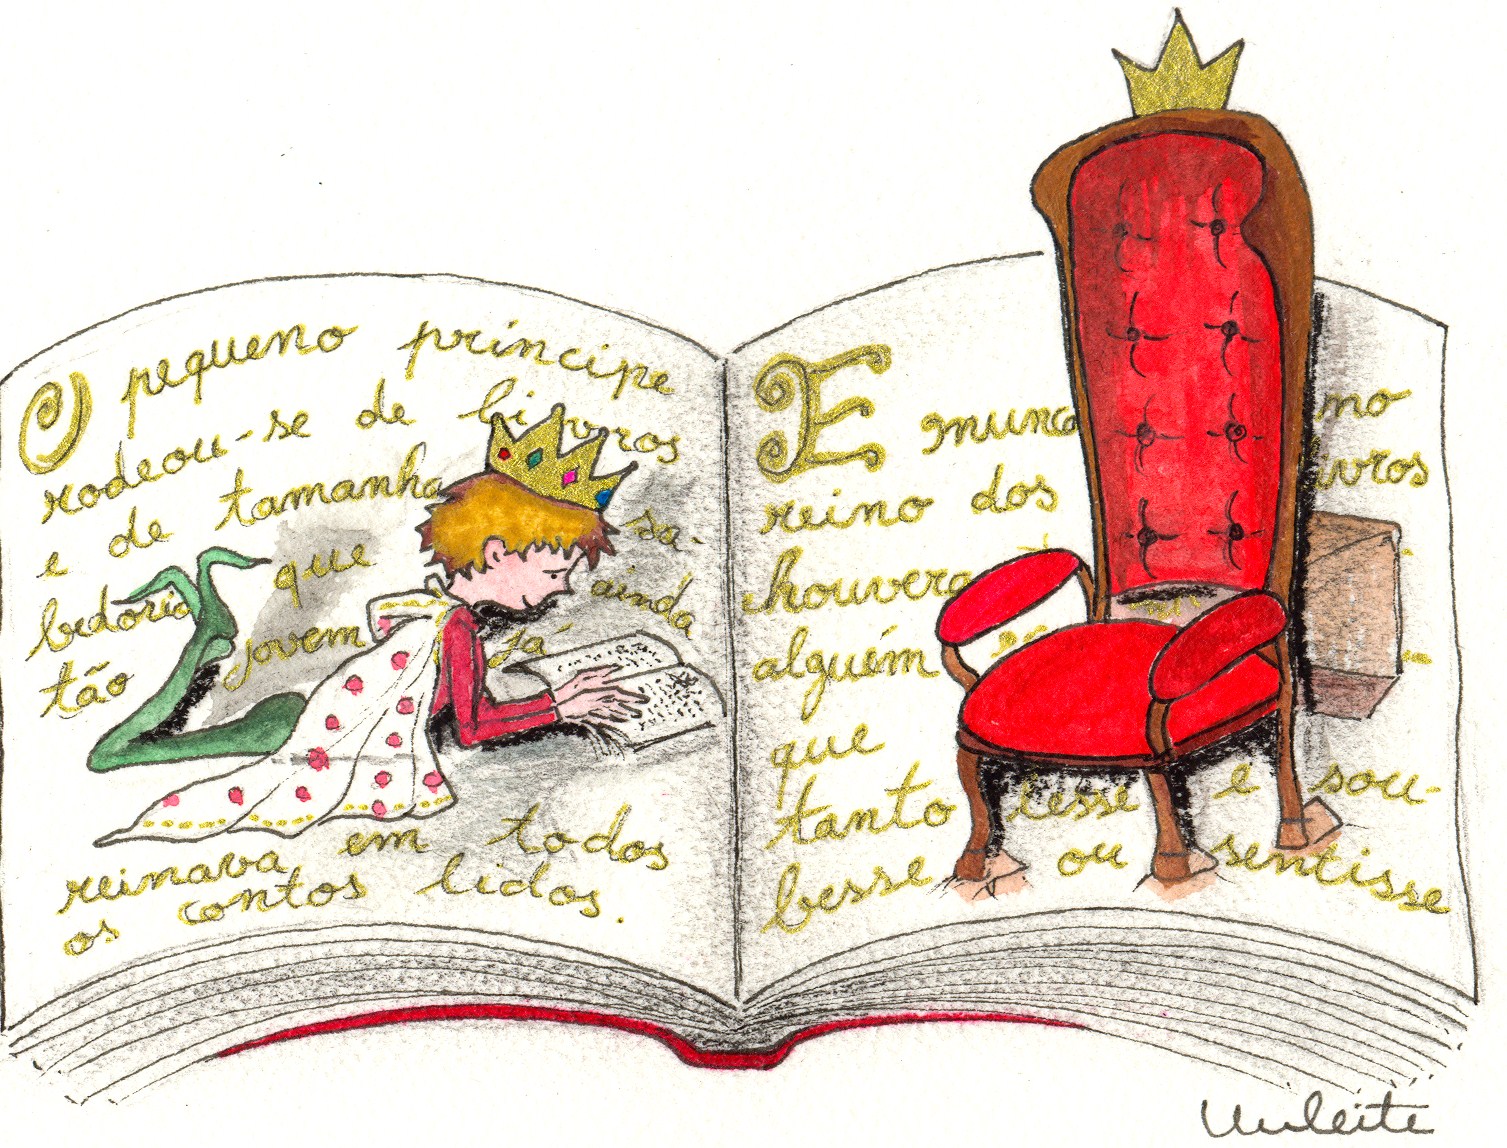 O pequeno príncipe
rodeou-se de livros
e de tamanha sa-
bedoria que ainda
tão jovem já
reinava em todos
os contos lidos.
E nunca no
reino dos livros
houvera
alguém
que
tanto lesse e sou-
besse ou sentisse